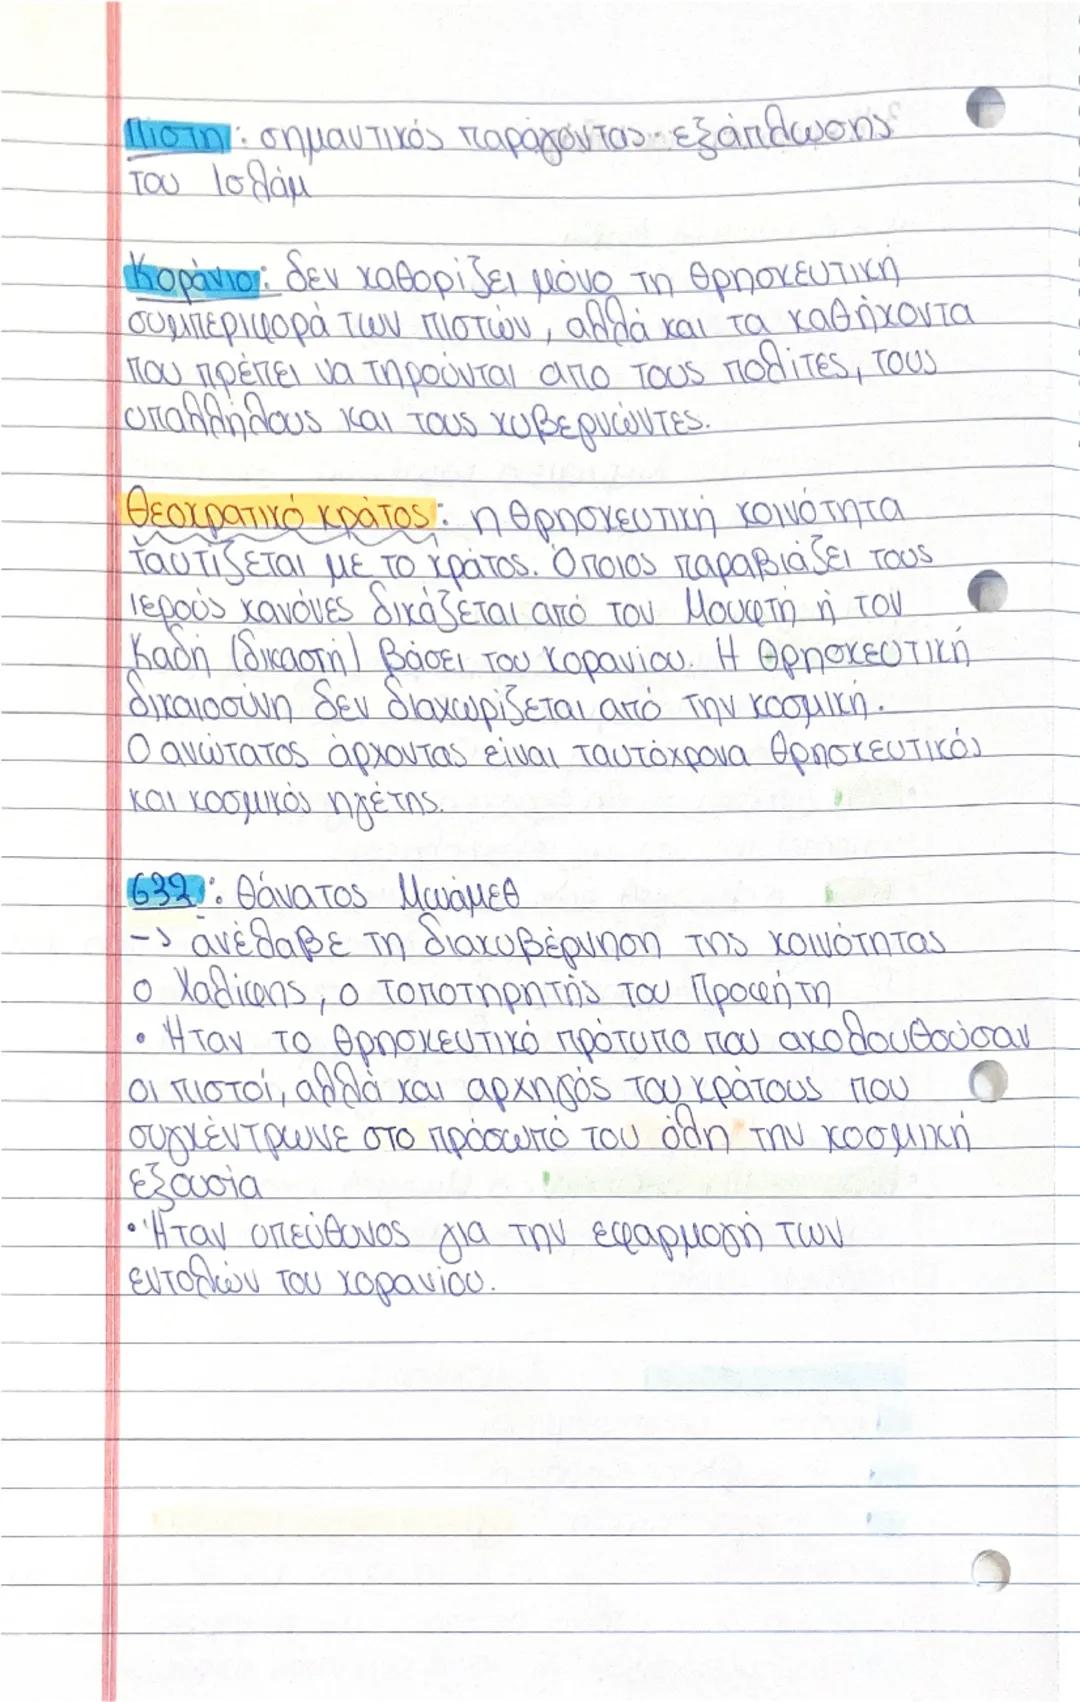 Πίστη: σημαντικός παράγοντας εξάπλωσης
του Ισλάμ
Κοράνιο: δεν καθορίζει μόνο τη θρησκευτική
συμπεριφορά των πιστών, αλλά και τα καθήκοντα
που πρέπει να τηρούνται απο τους πολίτες, τους
υπαλλήλους και τους κυβερνώντες.
Θεοκρατικό κράτος: η θρησκευτική κοινότητα
ταυτίζεται με το κράτος. Όποιος παραβιάζει τους
ιερούς κανόνες δικάζεται από τον Μουφτή ή τον
Καδή (δικαστή) βάσει του κορανίου. Η θρησκευτική
δικαιοσύνη δεν διαχωρίζεται από την κοσμική.
Ο ανώτατος άρχοντας είναι ταυτόχρονα θρησκευτικός
και κοσμικός ηγέτης.
632: θάνατος Μωάμεθ
-> ανέλαβε τη διακυβέρνηση της κοινότητας
ο Χαλίφης, ο τοποτηρητής του Προφήτη
• Ήταν το θρησκευτικό πρότυπο που ακολουθούσαν
οι πιστοί, αλλά και αρχηγός του κράτους που
συγκέντρωνε στο πρόσωπό του όλη την κοσμική
εξουσία
• Ήταν υπεύθυνος για την εφαρμογή των
εντολών του κορανίου.